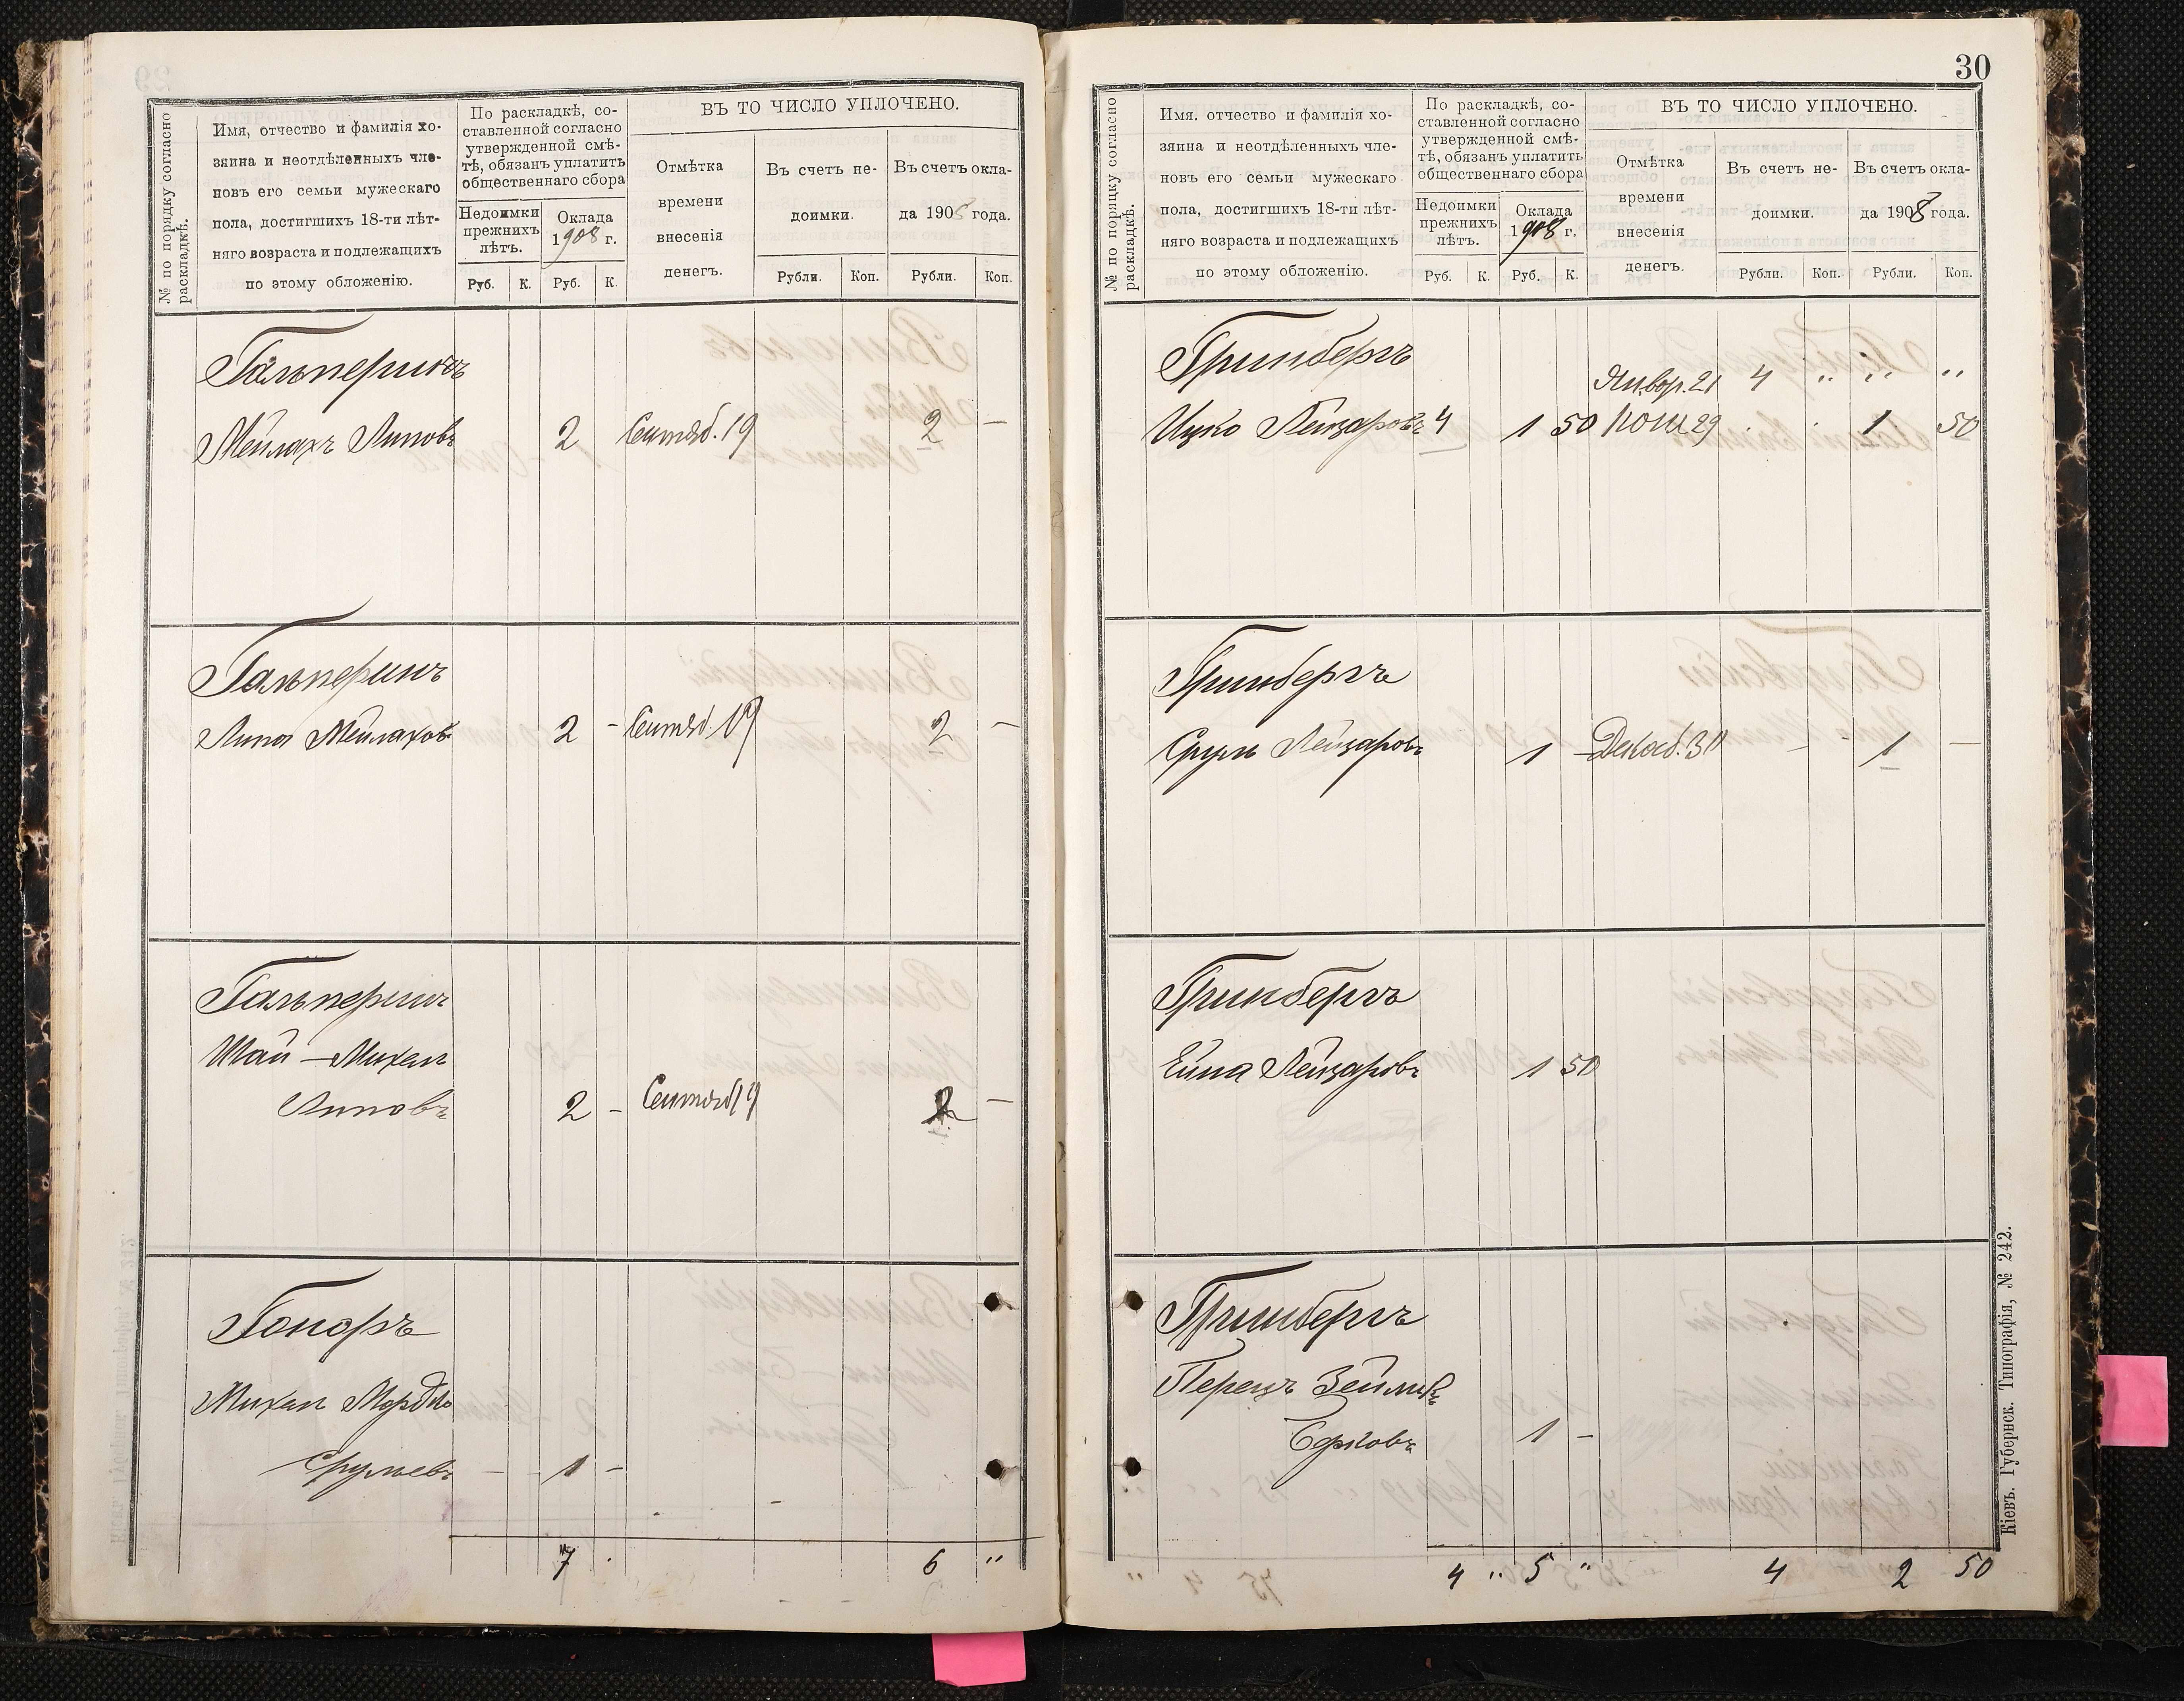 № по порядку согласно раскладкѣ.
Имя, отчество и фамилія хо-
зяина и неотдѣленныхъ чле-
новъ его семьи мужескаго
пола, достигшихъ 18-ти лѣт-
няго возраста и подлежащихъ
по этому обложенію.
По раскладкѣ, со-
ставленной согласно
утвержденной смѣ-
тѣ, обязанъ уплатить
общественнаго сбора
Недоимки
прежнихъ
лѣтъ.
Оклада
1908 г.
Руб. К. Руб. К.
ВЪ ТО ЧИСЛО УПЛОЧЕНО.
Отмѣтка
времени
внесенія
денегъ.
Въ счетъ не-
доимки.
Въ счетъ окла-
да 190 года.
Рубли. Коп. Рубли. Коп.
Гальперинъ
Мейлахъ Липовъ 2 Сентяб. 19 2 —
Гальперинъ
Липа Мейлахов 2 - Сентяб. 19 2 —
Гальперинъ
Шая — Михель
Липовъ 2 - Сентяб 19 2 —
Гоноръ
Михель Мордко
Срулевъ — 1 -
7 . 6 "
30
№ по порядку согласно раскладкѣ.
Имя. отчество и фамилія хо-
зяина и неотдѣленныхъ чле-
новъ его семьи мужескаго
пола, достигшихъ 18-ти лѣт-
няго возраста и подлежащихъ
по этому обложенію.
По раскладкѣ, со-
ставленной согласно
утвержденной смѣ-
тѣ, обязанъ уплатить
общественнаго сбора
Недоимки
прежнихъ
лѣтъ.
Оклада
1908 г.
Руб. К. Руб. К.
ВЪ ТО ЧИСЛО УПЛОЧЕНО.
Отмѣтка
времени
внесенія
денегъ.
Въ счетъ не-
доимки.
Въ счетъ окла-
да 1908 года.
Рубли. Коп. Рубли. Коп.
Гринбергъ
Январ. 21 4 " " "
Ицко Лейзаровъ 4 1 50 29 . . 1 50
Гринбергъ
Сруль Лейзаровъ 1 - Декаб. 30 - - 1 —
Гринбергъ
Лейзаровъ 1 50
Гринбергъ
Перецъ Зейликъ
Берковъ 1 -
4 " 5 " 4 2 50
Кіевъ. Губернск. Типографія, № 242.